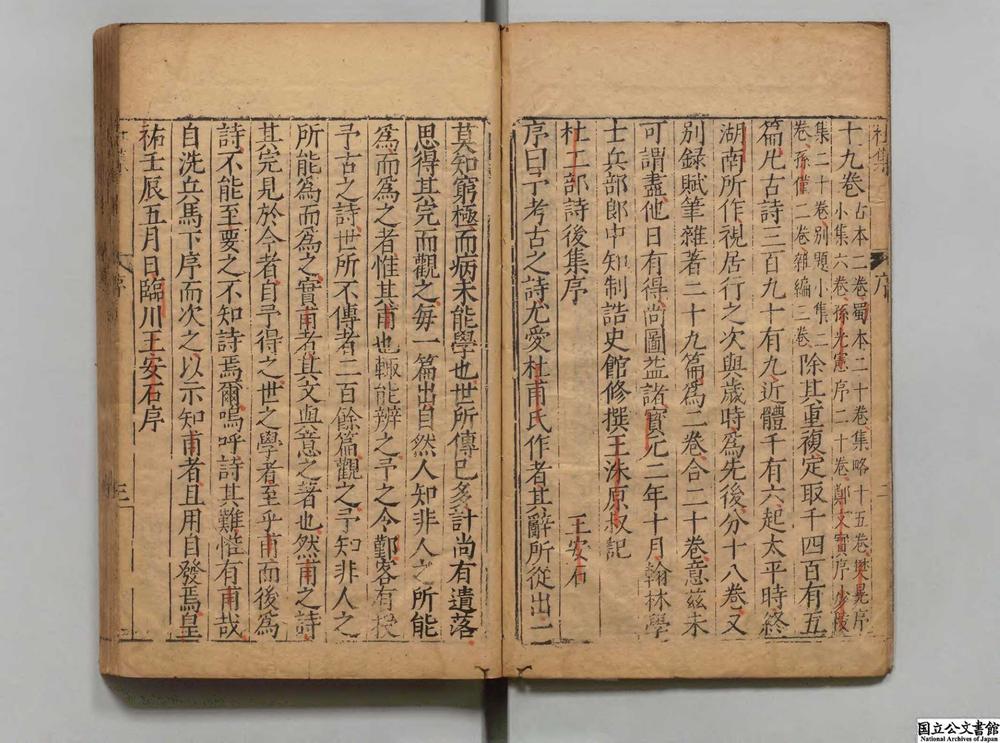 十九卷
古本二卷蜀本二十卷集略十五卷樊晃序
小集六卷孫光憲序二十卷鄭文寶序少陵
集二十卷別題小集二
卷孫僅二卷雜編三卷
除其重複定取千四百有五
篇凡古詩三百九十有九近體千有六起太平時終
湖南所作視居行之次與歲時爲先後分十八卷又
別録賦筆雜著二十九篇爲二卷合二十卷意茲未
可謂盡他日有得尚圖益諸寶元二年十月翰林學
士兵部郎中知制誥史館修撰王洙原叔記
杜工部詩後集序
王安石
序曰予考古之詩尤愛杜甫氏作者其辭所從出一
莫知窮極而病未能學也世所傳已多計尚有遺落
思得其完而觀之每一篇出自然人知非人之所能
爲而爲之者惟其甫也輙能辨之予之令鄞客有授
予古之詩世所不傳者二百餘篇觀之予知非人之
所能爲而爲之實甫者其文與意之著也然甫之詩
其完見於今者自予得之世之學者至乎甫而後爲
詩不能至要之不知詩焉爾嗚呼詩其難惟有甫哉
自洗兵馬下序而次之以示知甫者且用自發焉皇
祐壬辰五月日臨川王安石序
序
三
国立公文書館
National Archives of Japan